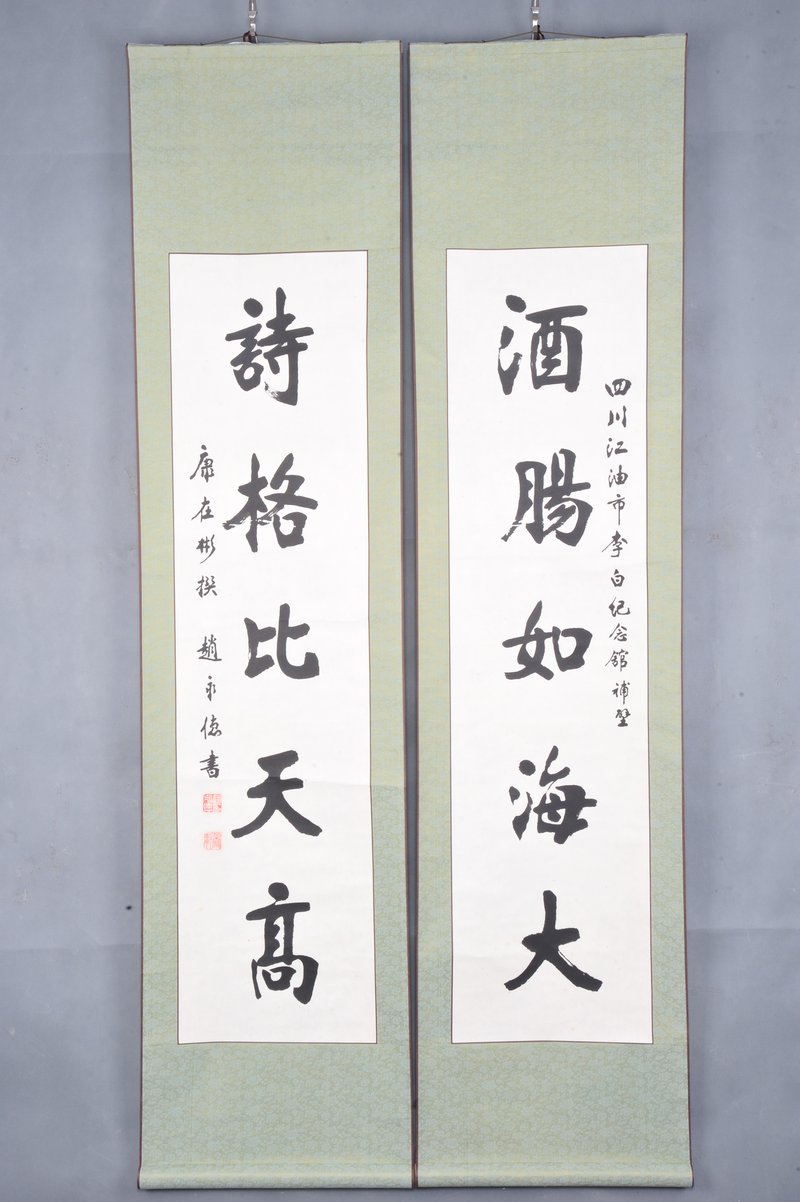 四川江油市李白纪念館補壁
酒腸如海大
詩格比天高
康在彬撰 趙永德書